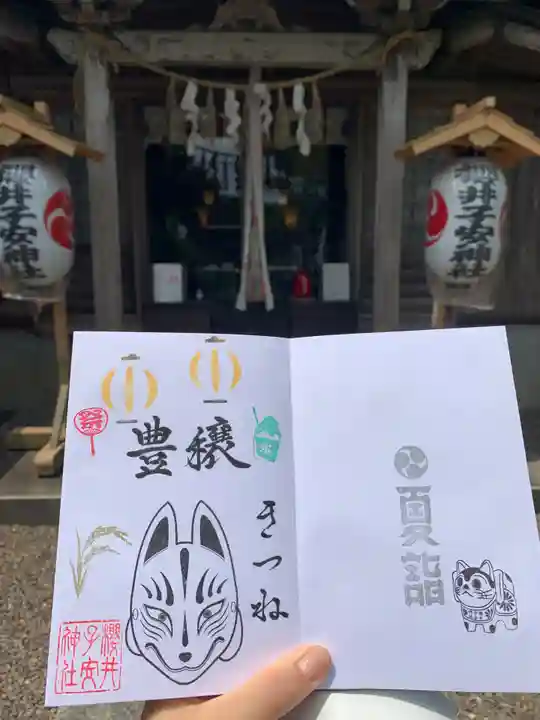 櫻井子安神社
櫻井子安神社
祭
豊穣
氷
きつね
櫻井
子安
神社
夏詣